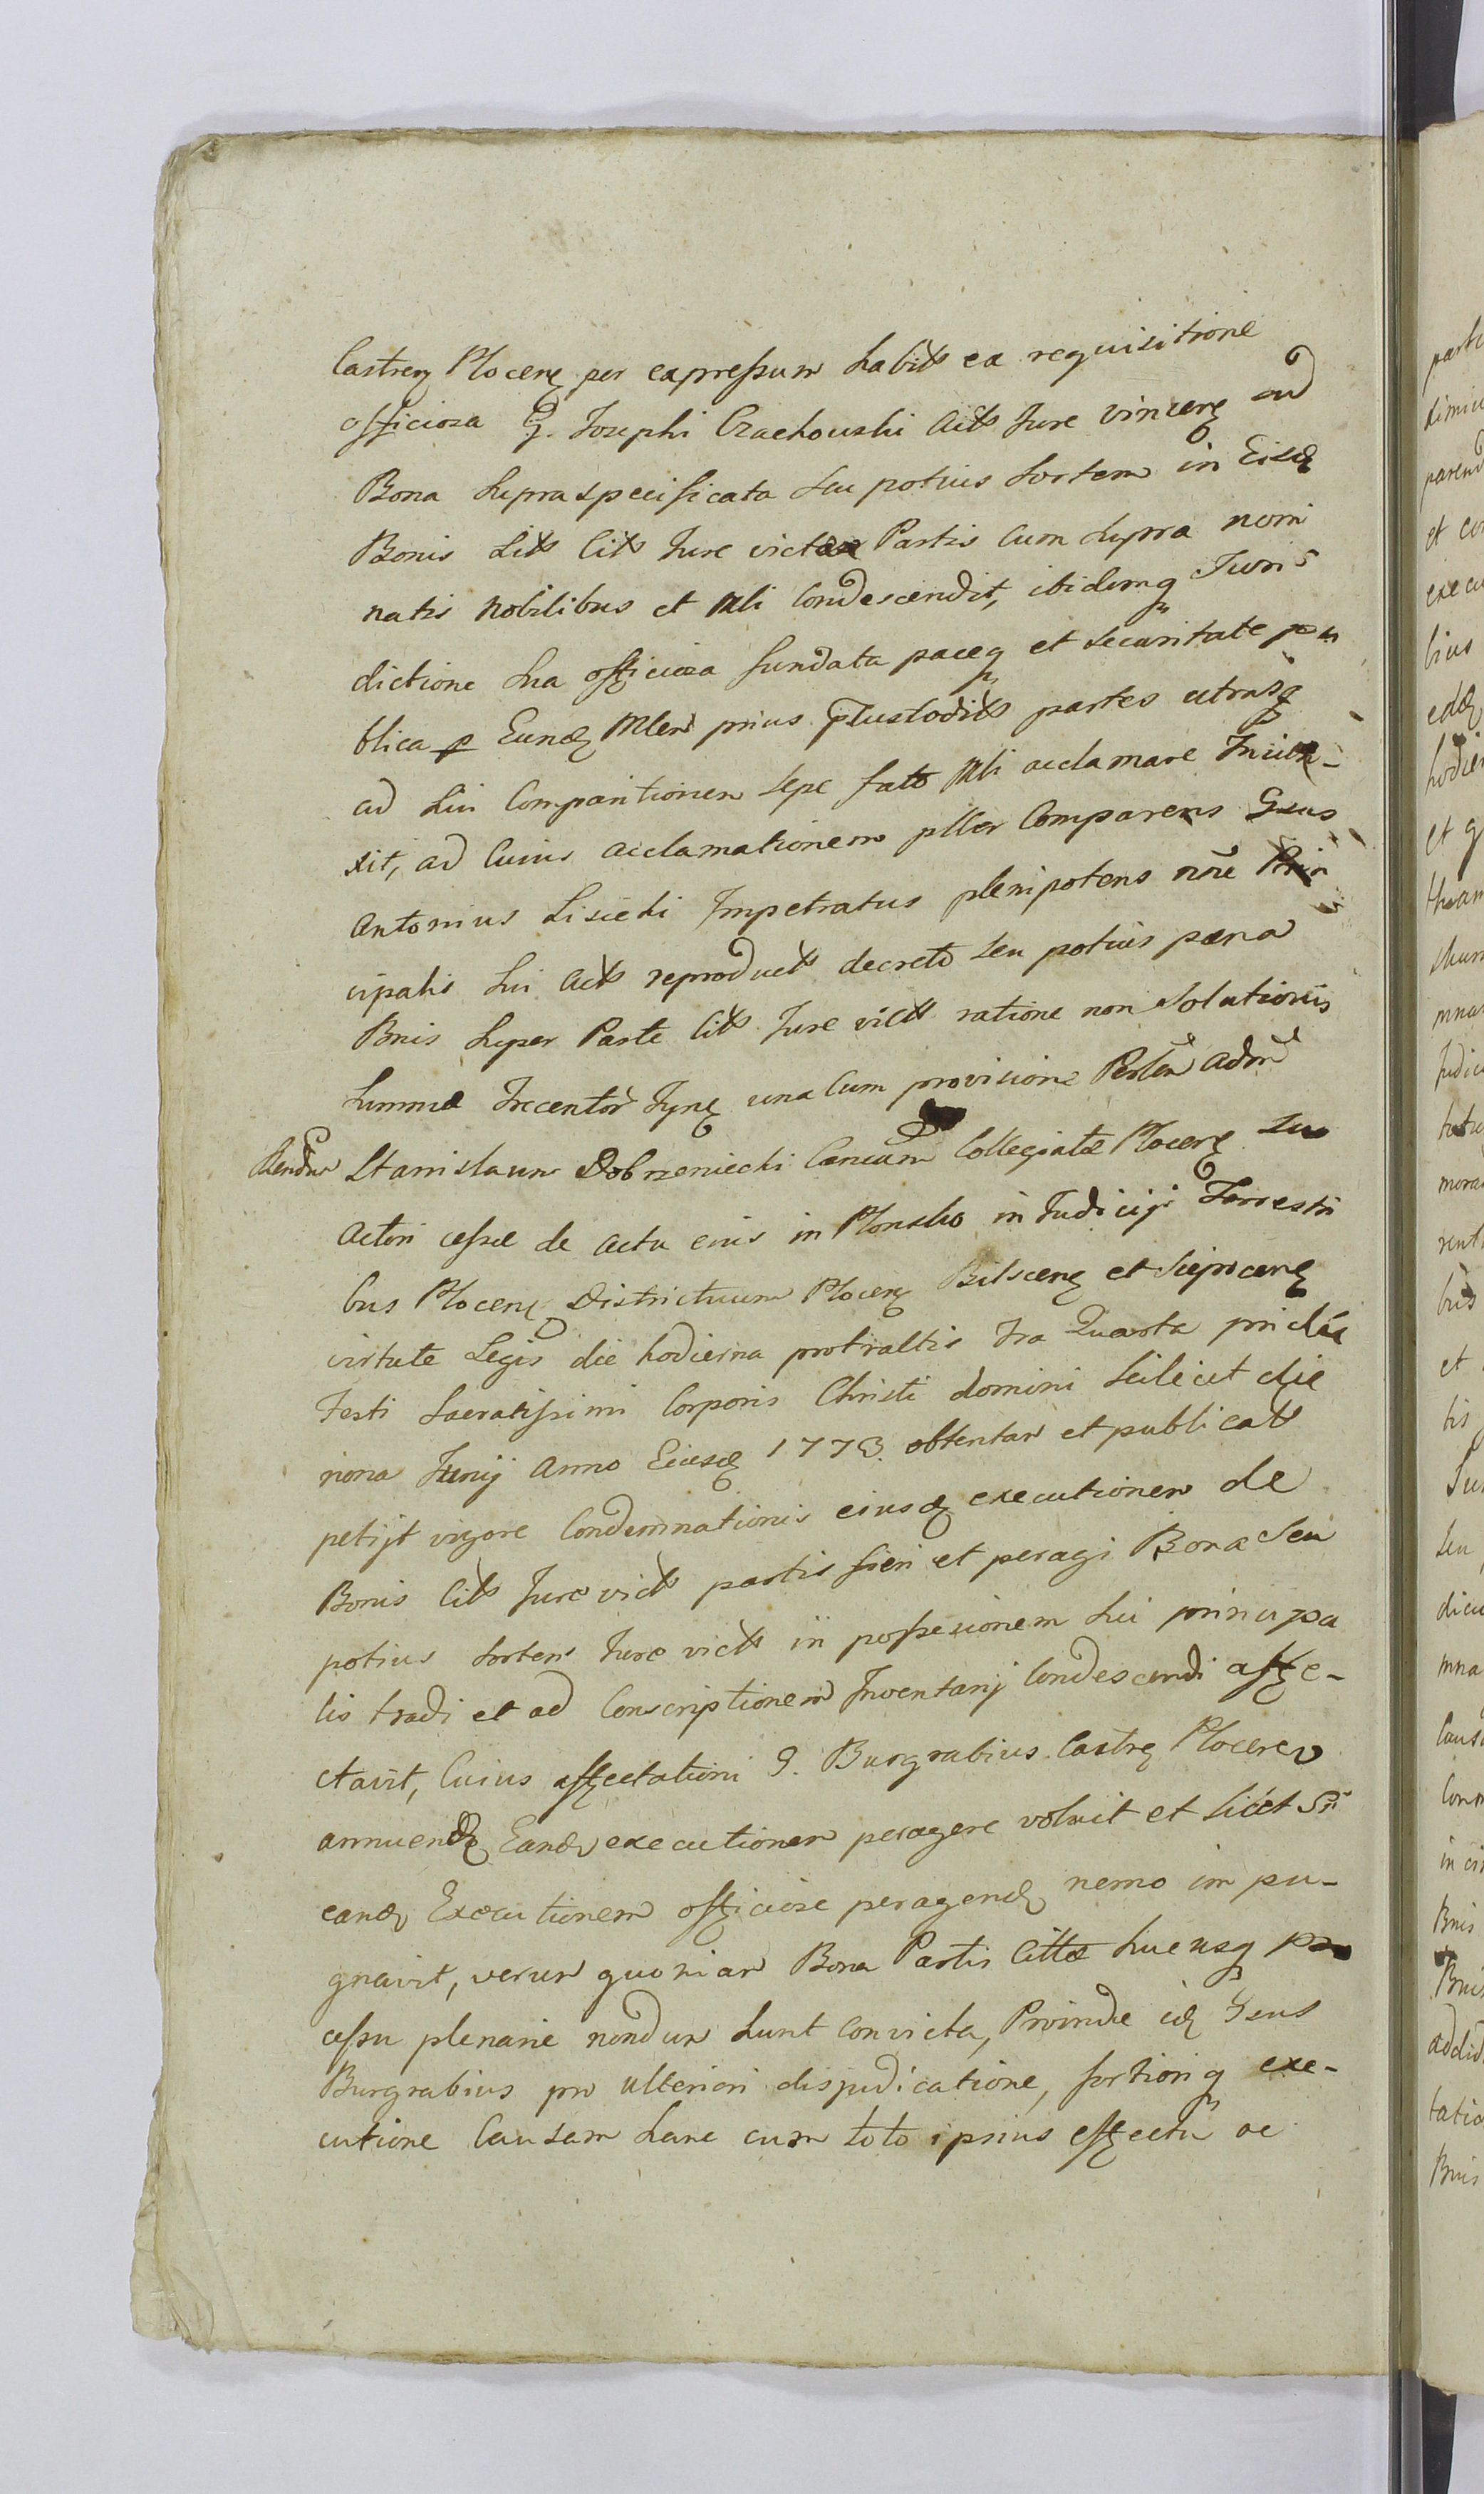 Castren Plocen per expressum habit ex requisitione
officiosa G. Josephi Czachowski Act Jure vincen ad
Bona supraspecificata seu potius Sortem in Eisd
Bonis Sit Cit Jure victae Partis cum supra nomi
natis Nobilibus et Mli Condescendit, ibidemq Juris
dictione sua officiosa fundata paceq et securitate pu
blica p Eund Mlem prius partes utrasq
ad sui Comparitionem sepe fato Mli acclamare Iniun-
xit, ad cuius acclamationem pllr Comparens Gsus
Antonius Lisicki Impetratus plenipotens noe Prin
cipalis sui Act reproduct decreto seu potius paena
Bnis super Parte Cit Jure vict ratione non Solutionis
Summae Trecentor Tyn una cum provisione Perlem Adm
Rendum Stanislaum Dobrzeniecki Cancum Collegiatae Plocen suo
Actori cessae de actu eius in Plonsko in Judicijs Terrestri
bus Plocen Districtuum Plocen Bilscen et Sieprcen
virtute Legis die hodierna protractis fra Quarta pridie
Festi Sacratissimi Corporis Christi domini Scilicet die
nona Junij Anno Eiusd 1773 obtentar et publicat
petijt vigore Condemnationis eiusd executionem de
Bonis Cit Jure vict partis fieri et peragi Bona Seu
potius Sortem Jure vict in possesionem sui principa
lis tradi et ad Conscriptionem Inventarij Condescendi affe-
ctavit, Cuius affectationi G. Burgrabius Castren Plocen
annuend Eand executionem peragere voluit et licet in
eand Executionem officiose peragend nemo im pu-
gnavit, verum quoniam Bona Partis Cittae hucusq pro
cessu plenarie nondum sunt convicta, Proinde id Gsus
Burgrabius pro ulteriori disjudicatione, fortioriq exe-
cutione Causam hanc cum toto ipsius effectu ac